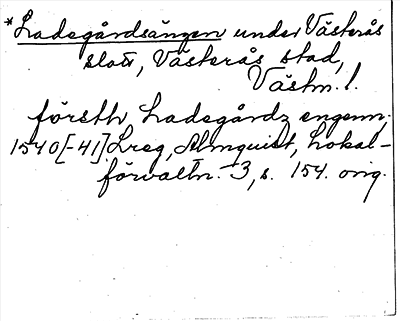 *Ladegårdsängen under Västerås
slott, Västerås stad,
Västm. l.
förstk Ladegårdz engenn,
1540[-41]. Lreg, Almquist, Lokal-
förvaltn. 3, s. 154. orig.